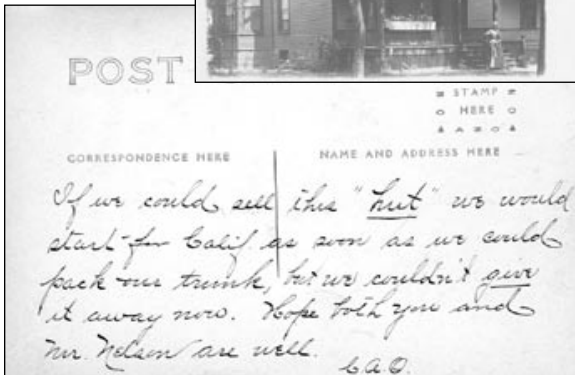 POST
STAMP
HERE
AZO
CORRESPONDENCE HERE
NAME AND ADDRESS HERE
If we could sell this "hut" we would
start for Calif. as soon as we could
pack our trunk, but we couldn't give
it away now. Hope both you and
Mr. Nelson are well.
C.A.O.